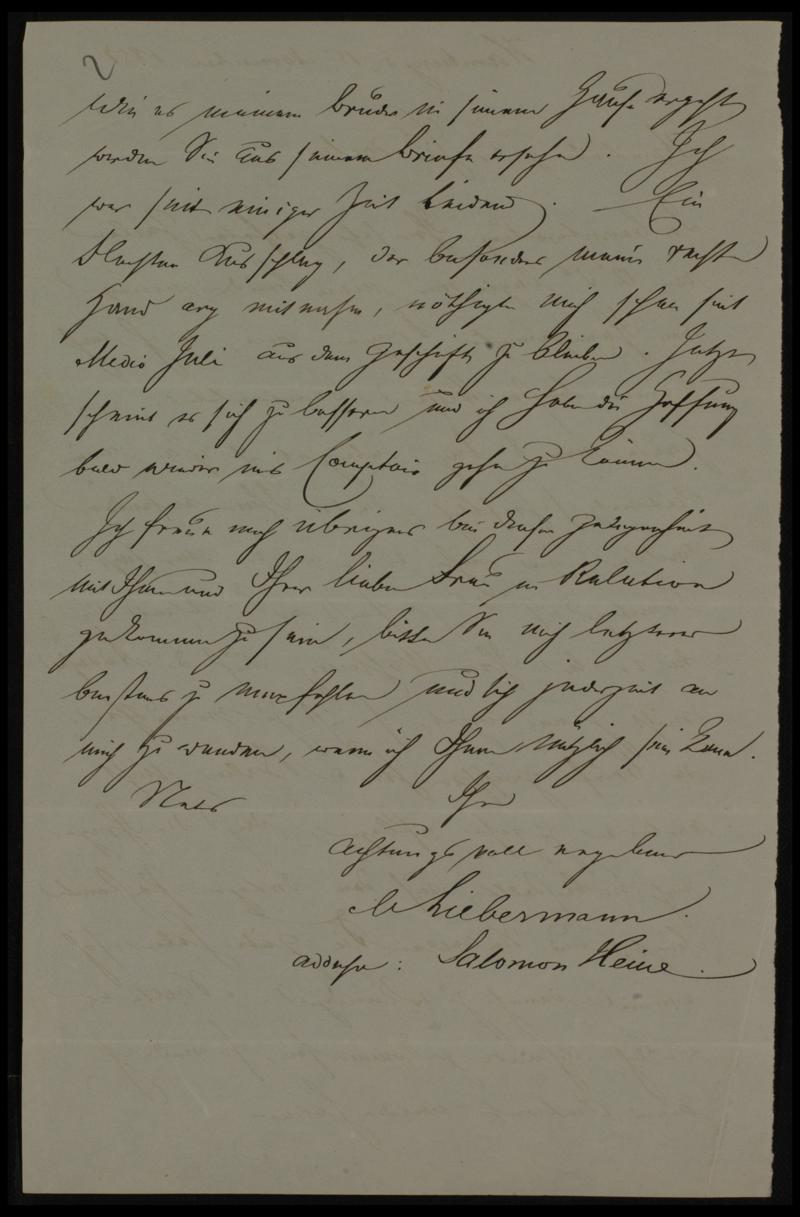 2
Wie es meinem Bruder in seinem Hause ergeht
werden Sie aus seinem Briefe ersehen. Ich
war seit einiger Zeit leidend. — Ein
Flechten Ausschlag, der besonders meine rechte
Hand arg mitnahm, nöthigte mich schon seit
Medio Juli aus dem Geschäft zu bleiben. Jetzt
scheint es sich zu bessern und ich habe die Hoffnung
bald wieder ins Comptoir gehen zu können.
Ich freue mich übrigens bei dieser Gelegenheit
mit Ihnen und Ihrer lieben Frau in Relation
gekommen zu sein, bitte Sie mich letzterer
bestens zu empfehlen und sich jederzeit an
mich zu wenden, wenn ich Ihnen nützlich sein kann.
Stets Ihr
achtungsvoll ergebener
Liebermann.
addresse: Salomon Heine.